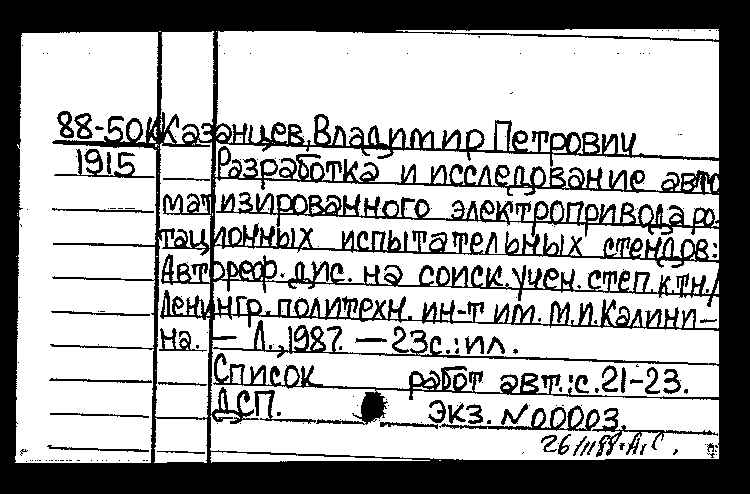 88-50К Казанцев, Владимир Петрович
1915 Разработка и исследование авто
матизированного электропривода ро-
тационных испытательных стендов:
Автореф. дис. на соиск. учен. степ. к.т.н./
Ленингр. политехн. ин-т им. М.И. Калини-
на. — Л., 1987. — 23с.: ил.
Список работ авт.: с. 21-23.
ДСП. Экз. N00003.